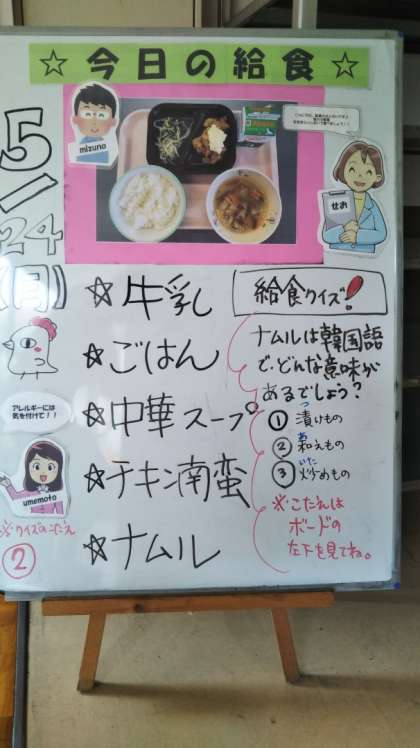 ☆今日の給食☆
mizuno
せお
5/24(月)
☆牛乳
☆ごはん
☆中華スープ
☆チキン南蛮
☆ナムル
アレルギーには
気を付けて！！
umemoto
※クイズのこたえ
②
給食クイズ！
ナムルは韓国語
で、どんな意味が
あるでしょう？
① 漬けもの
つ
② 和えもの
あ
③ 炒めもの
いた
※こたえは
ボードの
左下を見てね。